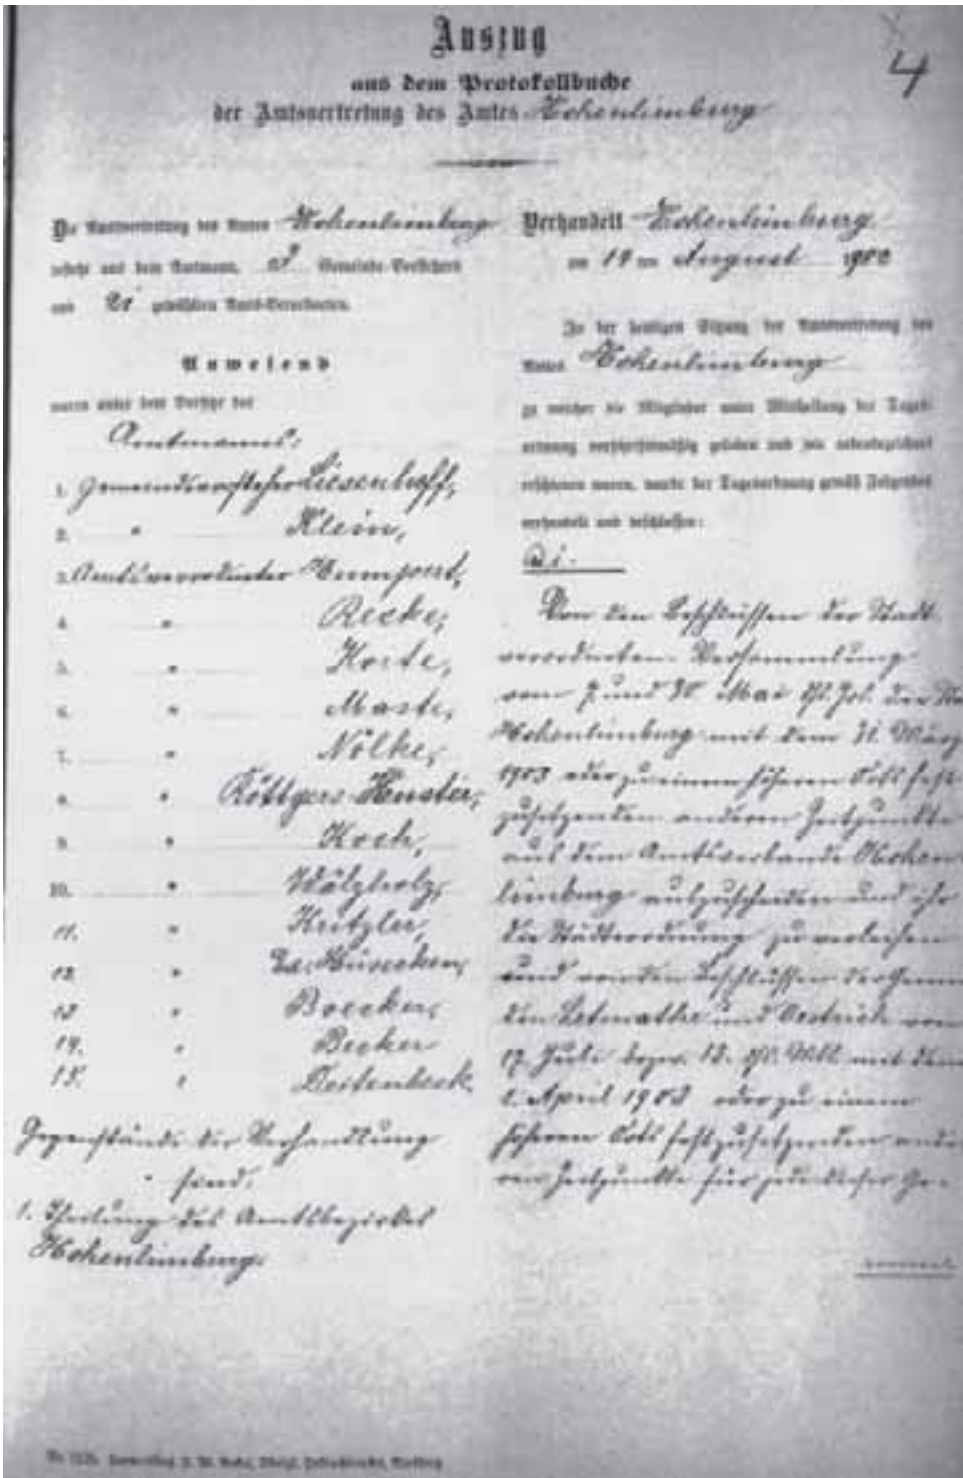 Auszug
4
aus dem Protokollbuche
der Amtsvertretung des Amtes Hohenlimburg
Die Amtsvertretung des Amtes Hohenlimburg
besteht aus dem Amtmann, 3 Gemeinde-Vorstehern
und 21 gewählten Amts-Verordneten.
Anwesend
waren unter dem Vorsitze des
Amtmanns:
1. Gemeindevorsteher Liesenhoff,
2. " Klein,
3. Amtsverordneter Humpert,
4. " Recke,
5. " Korte,
6. " Maste,
7. " Nölke,
8. " Röttgers-Huster,
9. " Koch,
10. " Wälzholz,
11. " Kritzler,
12. " Ed. Hüsecken,
13. " Boecker,
14. " Becker
15. " Deitenbeck.
Gegenstände der Verhandlung
sind:
1. Theilung des Amtsbezirkes
Hohenlimburg.
Verhandelt Hohenlimburg
am 14 ten August 1902
In der heutigen Sitzung der Amtsvertretung des
Amtes Hohenlimburg
zu welcher die Mitglieder unter Mittheilung der Tages-
ordnung vorschriftsmäßig geladen und wie nebenbezeichnet
erschienen waren, wurde der Tagesordnung gemäß Folgendes
verhandelt und beschlossen:
Von den Beschlüssen der Stadt-
verordneten-Versammlung
vom 7. und 30. Mai ds. Js. der
Hohenlimburg mit dem 31. März
1903 oder zu einem höheren Orts fest-
zusetzenden anderen Zeitpunkte
aus dem Amtsverbande Hohen-
limburg auszuscheiden und ihr
die Städteordnung zu verleihen
und von den Beschlüssen der Gemein-
den Letmathe und Oestrich vom
17. Juli bezw. 12. ds. Mts. mit dem
1. April 1903 oder zu einem
höheren Orts festzusetzenden ande-
ren Zeitpunkte für jede dieser Ge-